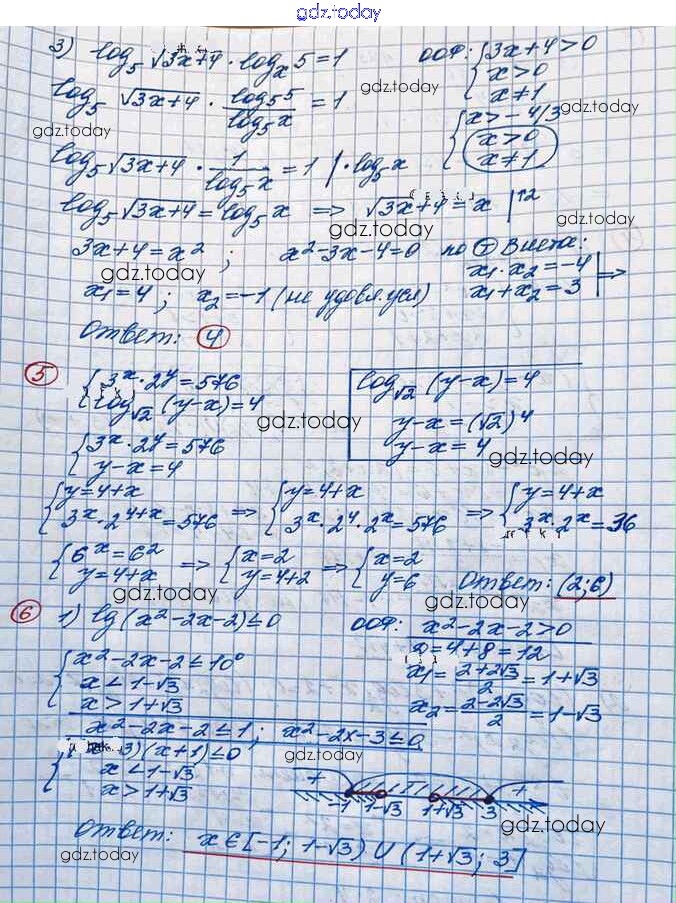 gdz.today
3) log₅ √3x+4 · logₓ 5 = 1 ООФ: { 3x+4 > 0
x > 0
x ≠ 1
log₅ √3x+4 · log₅5 / log₅x = 1 gdz.today
{ x > -4/3 gdz.today
x > 0
x ≠ 1
gdz.today
log₅ √3x+4 · 1 / log₅x = 1 | · log₅x
log₅ √3x+4 = log₅ x => √3x+4 = x |↑2 gdz.today
3x+4 = x² ; x²-3x-4=0 по Т Виета:
gdz.today gdz.today
x₁ · x₂ = -4
x₁ + x₂ = 3 | =>
x₁ = 4 ; x₂ = -1 (не удовл. усл)
Ответ: 4
gdz.today
5 { 3ˣ · 2ʸ = 576
log√2 (y-x) = 4
gdz.today
log√2 (y-x) = 4
y-x = (√2)⁴
y-x = 4
gdz.today
{ 3ˣ · 2ʸ = 576
y-x = 4
{ y = 4+x
3ˣ · 2⁴⁺ˣ = 576 => { y = 4+x
3ˣ · 2⁴ · 2ˣ = 576 => { y = 4+x
3ˣ · 2ˣ = 36
{ 6ˣ = 6²
y = 4+x => { x = 2
y = 4+2 => { x = 2
y = 6 Ответ: (2; 6)
gdz.today gdz.today
6 1) lg (x²-2x-2) ≤ 0 ООФ: x²-2x-2 > 0
D = 4+8 = 12
x₁ = 2+2√3 / 2 = 1+√3
x₂ = 2-2√3 / 2 = 1-√3
{ x²-2x-2 ≤ 10⁰
x < 1-√3
x > 1+√3
gdz.today
x²-2x-2 ≤ 1 ; x²-2x-3 ≤ 0
3)(x+1) ≤ 0 gdz.today
x < 1-√3
x > 1+√3
+ - +
-1 1-√3 1+√3 3
gdz.today
Ответ: x ∈ [-1; 1-√3) ∪ (1+√3; 3]
gdz.today